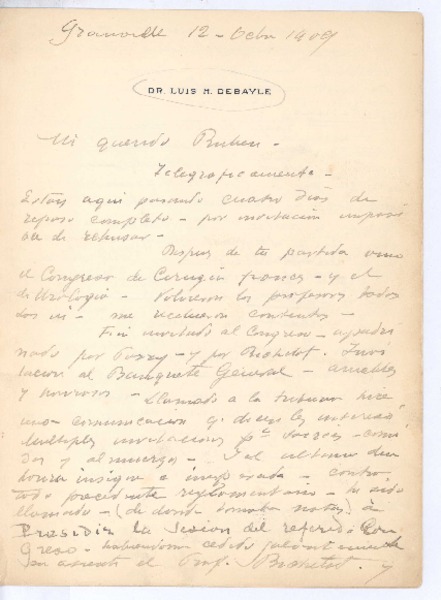 Granville 12 - Octu 1909
DR. LUIS H. DEBAYLE
Mi querido Ruben -
Telegraficamente -
Estoy aqui pasando cuatro dias de
reposo completo - por invitacion imposi
ble de rehusar -
Despues de tu partida vino
el Congreso de Cirugia frances - y el
de Urologia - Volvieron los profesores todos
los vi - me recibieron contentos -
Fui invitado al Congreso - apadri
nado por Pozzi - y por Bichelot. Invi
tacion al Banquete General - amables
y honrosos - Llamado a la tribuna hice
una comunicacion q. dicen les intereso
Multiples invitaciones pa. - comi
das y almuerzos - I al ultimo dia
honra insigne e inesperada - contra
todo precedente reglamentario - he sido
llamado - (de donde tomaba notas) á
Presidir la Sesion del referido Con
greso - habiendome cedido galantemente
su asiento el Prof. Bichelot - y